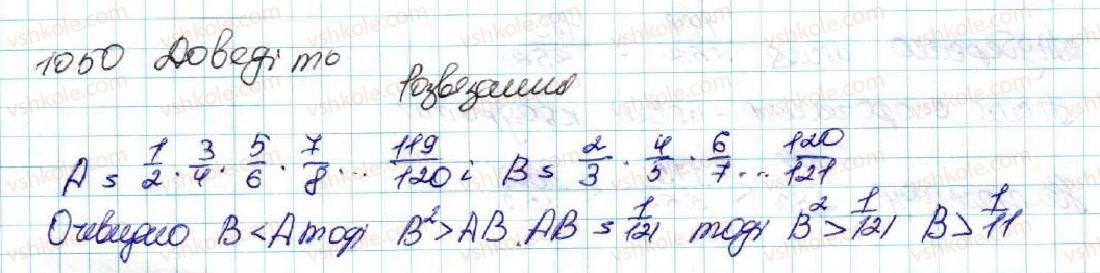 1050 Доведіть
Розвезання
A = 1/2 · 3/4 · 5/6 · 7/8 ... 119/120 і B = 2/3 · 4/5 · 6/7 ... 120/121
Очевидно B < A тоді B² > AB. AB = 1/121 тоді B² > 1/121 B > 1/11